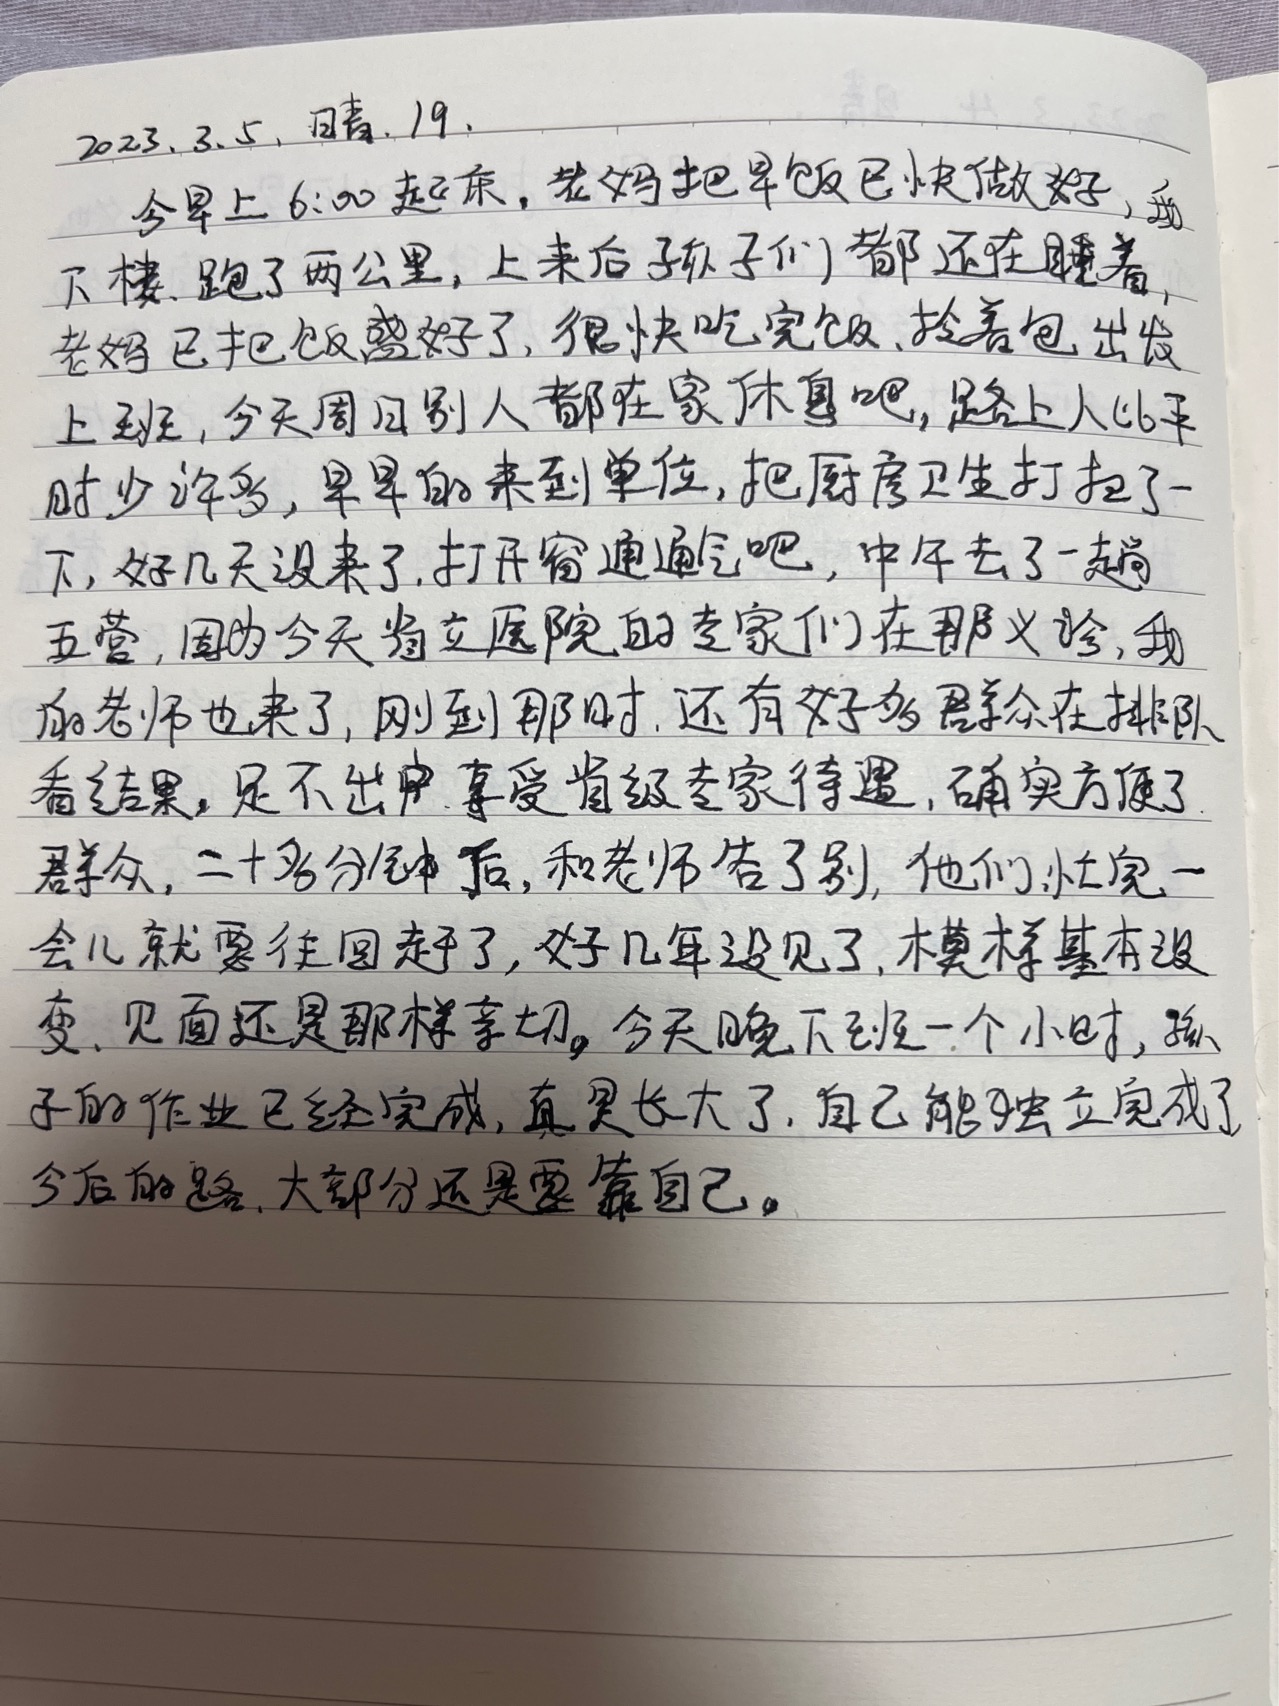 2023.3.5.晴.19.
今早上6:00起床，老妈把早饭已快做好，我
下楼.跑了两公里，上来后孩子们都还在睡着，
老妈已把饭盛好了，很快吃完饭、拎着包出发
上班，今天周日别人都在家休息吧，路上人比平
时少许多，早早的来到单位，把厨房卫生打扫了一
下，好几天没来了.打开窗通通气吧，中午去了一趟
五营，因为今天省立医院的专家们在那义诊，我
的老师也来了，刚到那时.还有好多群众在排队
看结果。足不出户.享受省级专家待遇，确实方便了
群众，二十多分钟后，和老师告了别，他们忙完一
会儿就要往回赶了，好几年没见了，模样基本没
变、见面还是那样亲切。今天晚下班一个小时，孩
子的作业已经完成，真是长大了，自己能独立完成了
今后的路、大部分还是要靠自己。